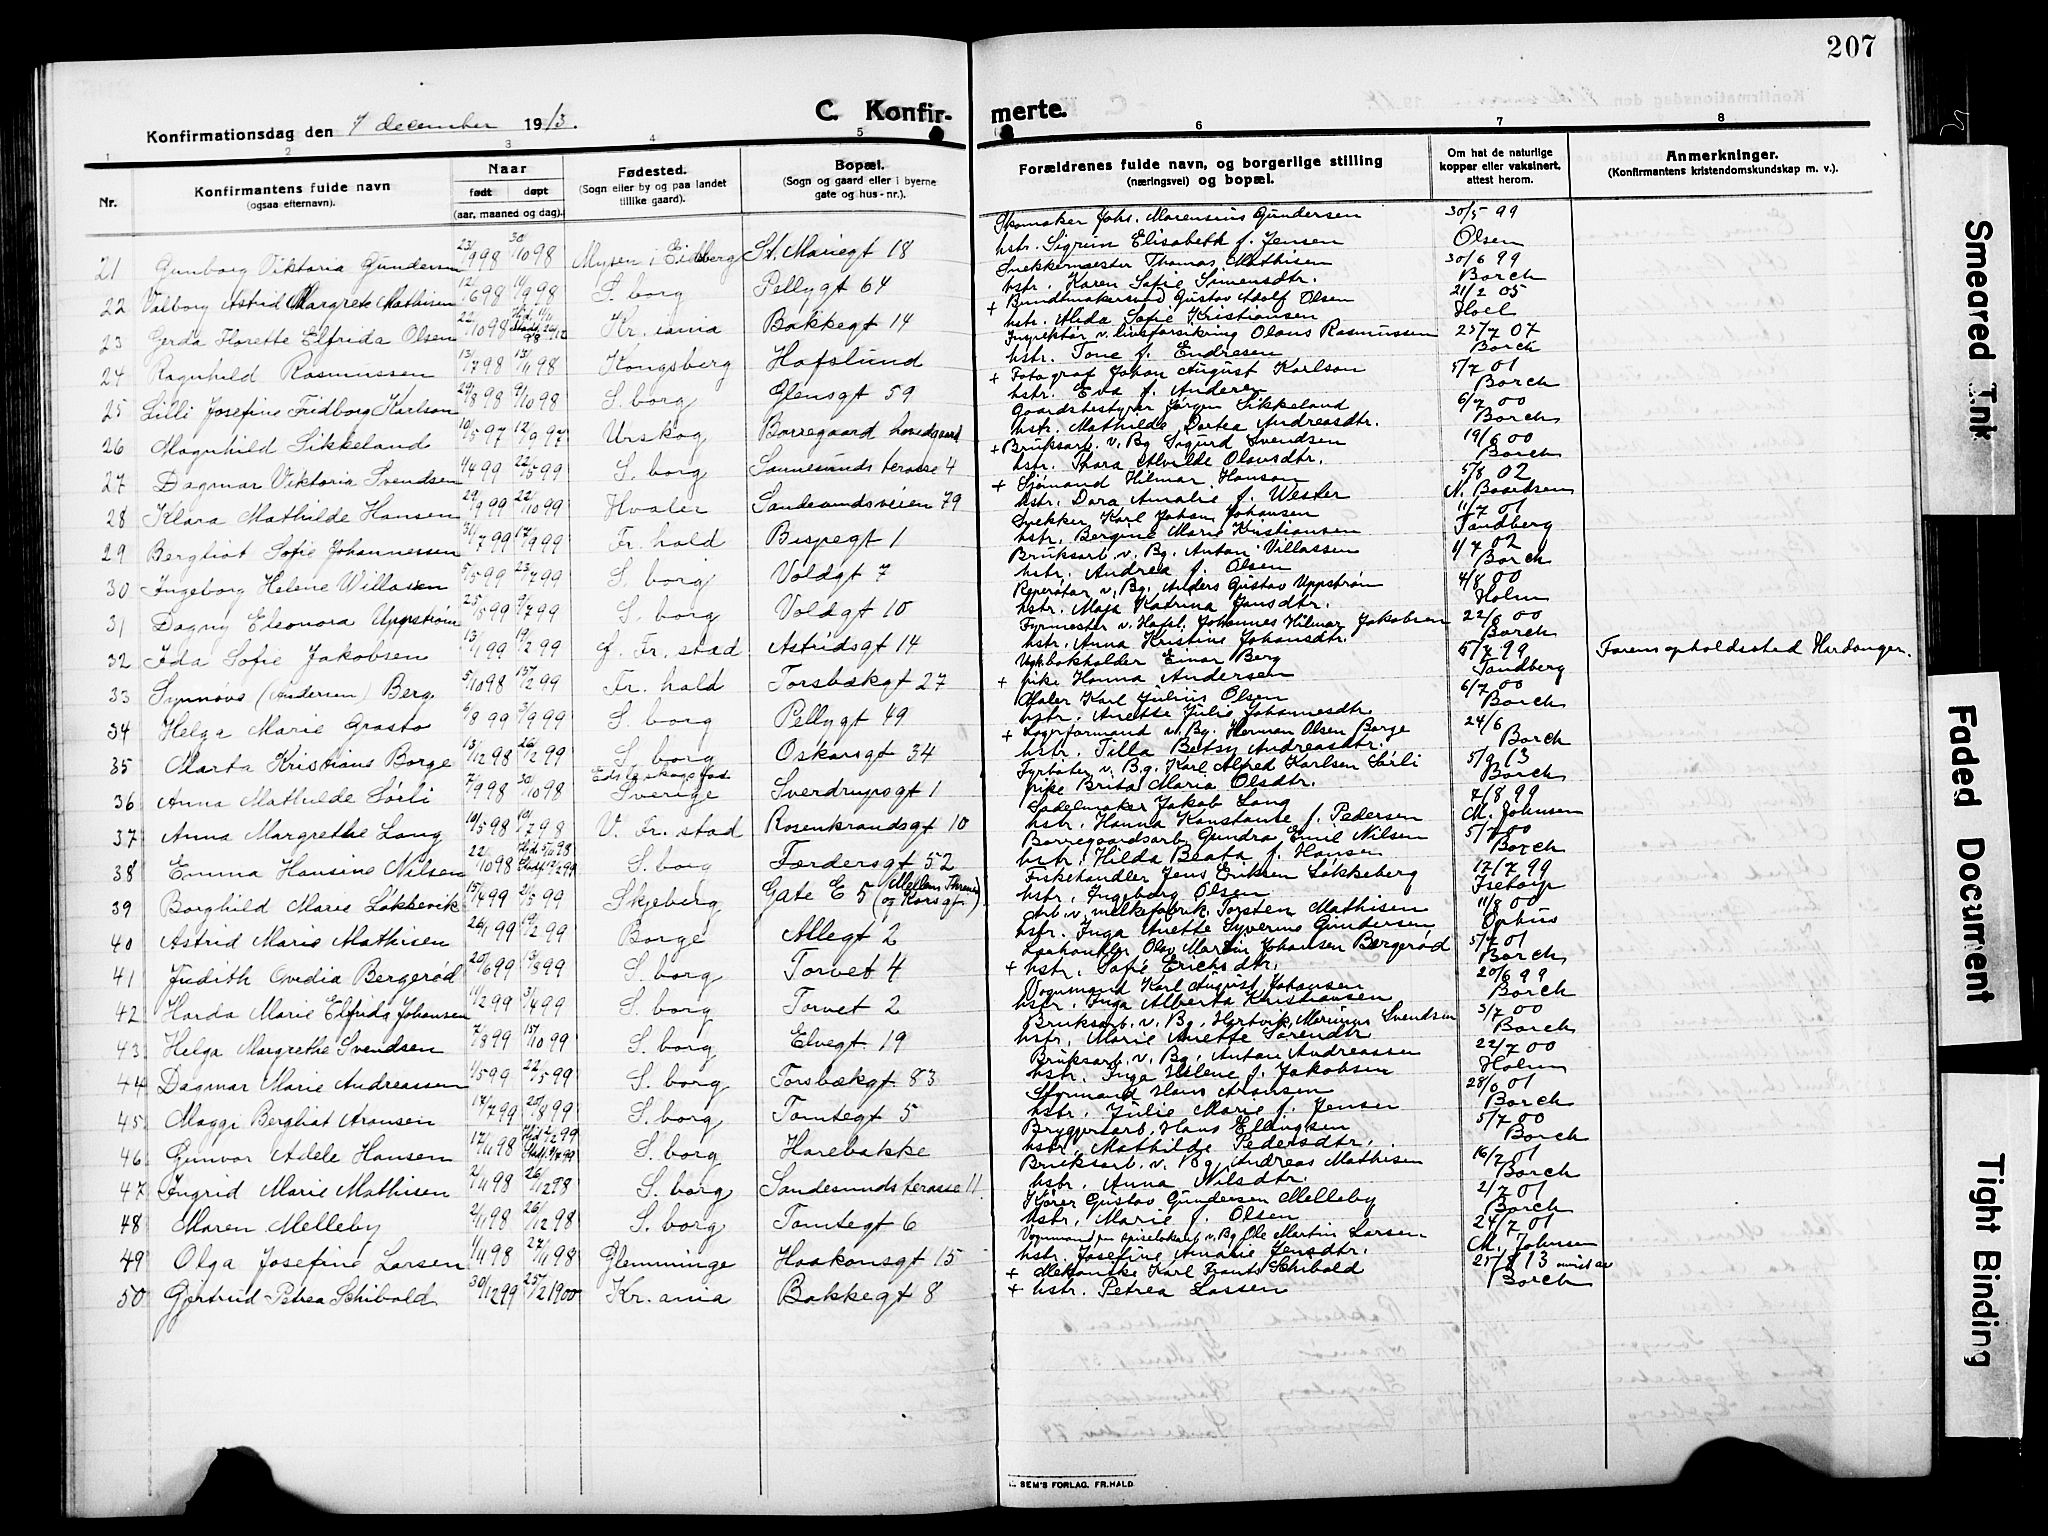 207
C. Konfirmerte.
Konfirmationsdag den 7 december 1913.
1 2 3 4 5 6 7 8
Nr.
Konfirmantens fulde navn
(ogsaa efternavn).
Naar
født døpt
(aar, maaned og dag).
Fødested.
(Sogn eller by og paa landet
tillike gaard).
Bopæl.
(Sogn og gaard eller i byerne
gate og hus-nr.).
Forældrenes fulde navn, og borgerlige stilling
(næringsvei) og bopæl.
Om hat de naturlige
kopper eller vaksinert,
attest herom.
Anmerkninger.
(Konfirmantens kristendomskundskap m. v.).
21 Gunborg Viktoria Gundersen 23/9 98 30/10 98 Mysen i Eidsberg St. Mariegt 18
Skomaker Johs. Marensius Gundersen 30/5 99
hstr. Sigrun Elisabeth f. Jensen Olsen
22 Valborg Astrid Margrete Mathisen 12/6 98 11/9 98 S. borg Pellygt 64
Snekkermester Thomas Mathisen 30/6 99
hstr. Karen Sofie Simensdtr. Borch
23 Gerda Florette Elfrida Olsen 22/10 98 Kr. iania Bakkegt 14
+ Bundtmakersvend Gustav Adolf Olsen 21/2 05
hstr. Alida Sofie Kristiansen Hoel
24 Ragnhild Rasmussen 13/7 98 13/11 98 Kongsberg Hafslund
Inspektør v. livsforsikring Olaus Rasmussen 25/7 07
hstr. Tone f. Endresen Borch
25 Lilli Josefine Fridborg Karlson 29/8 98 9/10 98 S. borg Glensgt 59
+ Fotograf Johan August Karlson 5/7 01
hstr. Eva f. Andersen Borch
26 Magnhild Sikkeland 10/5 97 12/9 97 Urskog Borregaard hovedgaard
Gaardsbestyrer Jørgen Sikkeland 6/7 00
hstr. Mathilde Dortea Andreasdtr. Borch
27 Dagmar Viktoria Svendsen 4/4 99 22/5 99 S. borg Sannesunds terasse 4
+ Bruksarb. v. Bg Sigurd Svendsen 19/6 00
hstr. Thora Alvilde Olavsdtr. Borch
28 Klara Mathilde Hansen 29/9 99 22/10 99 Hvaler Sandesundsveien 79
+ Sjømand Hilmar Hanson 5/8 02
hstr. Dora Amalie f. Wester N. Baartsen
29 Bergliot Sofie Johannessen 31/7 99 17/9 99 Fr. hald Bispegt 1
Snekker Karl Johan Johansen 11/7 01
hstr. Bergine Marie Kristiansen Sandberg
30 Ingeborg Helene Willasen 5/5 99 23/7 99 S. borg Voldgt 7
Bruksarb. v. Bg. Anton Villassen 1/7 02
hstr. Andrea f. Olsen Borch
31 Dagny Eleonora Uppstrøm 25/5 99 9/7 99 S. borg Voldgt 10
Reperatør v. Bg. Anders Gustav Uppstrøm 4/8 00
hstr. Maja Katrina Jonsdtr. Holm
32 Ida Sofie Jakobsen 13/1 99 19/2 99 g. Fr. stad Astridsgt 14
Fyrmester v. Hafsl. Johannes Hilmar Jakobsen 22/6 00
hstr. Anna Kristine Johansdtr. Borch
33 Synnøve (Andersen) Berg 5/10 98 15/2 99 Fr. hald Torsbækgt 27
Ugk. bokholder Einar Berg 5/7 99
+ pike Hanna Andersen Tandberg
Farens opholdssted Hardanger.
34 Helga Marie Grasto 6/8 99 3/9 99 S. borg Pellygt 49
Maler Karl Julius Olsen 6/7 00
hstr. Anette Julie Johannesdtr. Borch
35 Marta Kristiane Borge 13/12 98 26/2 99 S. borg Oskarsgt 34
+ Lagerformand v. Bg. Herman Olsen Borge 24/6
hstr. Tilla Betsy Andreasdtr. Borch
36 Anna Mathilde Sørli 7/9 98 30/10 98 Sverige Sverdrupsgt 1
Fyrbøter v. B.g. Karl Alfred Karlsen Sørli 5/9 13
pike Brita Maria Olsdtr. Borch
37 Anna Margrethe Lang 10/5 98 10/7 98 V. Fr. stad Rosenkrandsgt 10
Sadelmaker Jakob Lang 7/8 99
hstr. Hanna Konstanse f. Pedersen M. Johnsen
38 Emma Hansine Nilsen 22/10 98 S. borg Færdersgt 52
Borregaardsarb. Gundra Emil Nilsen 5/7 00
hstr. Hilda Beata f. Hansen Borch
39 Borghild Marie Løkkevik 15/4 99 21/5 99 Skjeberg Gate E 5 (Mellem Thrane og Korsgt.)
Fiskehandler Jens Eriksen Løkkeberg 17/7 99
hstr. Ingeborg Olsen
40 Astrid Marie Mathisen 26/1 99 19/2 99 Borge Allegt 2
Arb. v. melkefabrik. Torsten Mathisen 11/8 00
hstr. Inga Anette Syverine Gundersen Ophus
41 Judith Ovedia Bergerød 20/6 99 13/8 99 S. borg Torvet 4
Olav Martin Johansen Bergerød 5/7 01
+ hstr. Sofie Ericksdtr. Borch
42 Harda Marie Elfrida Johansen 11/2 99 3/4 99 S. borg Torvet 2
Vognmand Karl August Johansen 20/6 99
hstr. Inga Alberta Kristiansen Borch
43 Helga Margrethe Svendsen 7/8 99 15/10 99 S. borg Elvegt 19
Bruksarb. v. Bg. Hartvik Marinus Svendsen 3/7 00
hstr. Marie Anette Sørendtr Borch
44 Dagmar Marie Andreassen 1/5 99 22/5 99 S. borg Torsbækgt 83
Bruksarb. v. Bg. Anton Andreassen 22/7 00
hstr. Inga Helene f. Jakobsen Holm
45 Maggi Bergliot Aronsen 17/7 99 20/8 99 S. borg Tomtegt 5
Styrmand Hans Aronsen 28/6 01
hstr. Julie Marie f. Jensen Borch
46 Gunvor Adele Hansen 17/11 98 S. borg Harebakke
Bryggeriarb. Hans Ellingsen 5/7 00
hstr. Mathilde Pedersdtr. Borch
47 Ingrid Marie Mathisen 2/11 98 26/12 98 S. borg Sandesunds terasse 11.
Bruksarb. v. Bg. Andreas Mathisen 16/7 01
hstr. Anna Nilsdtr. Borch
48 Maren Melleby 2/11 98 26/12 98 S. borg Tomtegt 6
Kjører Gustav Gundersen Melleby 2/7 01
hstr. Marie f. Olsen Borch
49 Olga Josefine Larsen 1/11 98 27/11 98 Glemminge Haakonsgt 15
Vognmand v. Bg Ole Martin Larsen 24/7 01
hstr. Josefine Amalie Jensdtr. M. Johnsen
50 Gertrud Petrea Schibold 30/12 99 25/2 1900 Kr. ania Bakkegt 8
+ Mekaniske Karl Frants Schibold 25/8 13
+ hstr. Petrea Lassen Borch
SEM'S FORLAG. FR.HALD
Smeared Ink
Faded Document
Tight Binding